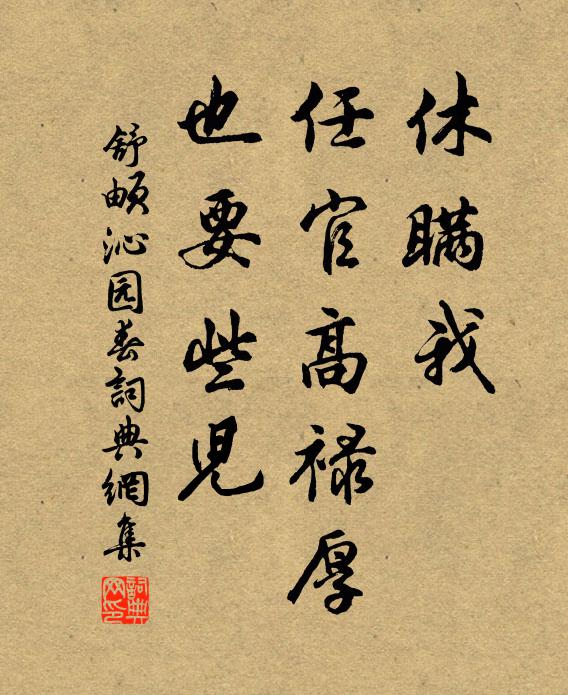 休瞒我
任官高禄厚
也要些児
舒頔沁园春詞典網集
詞典
网印